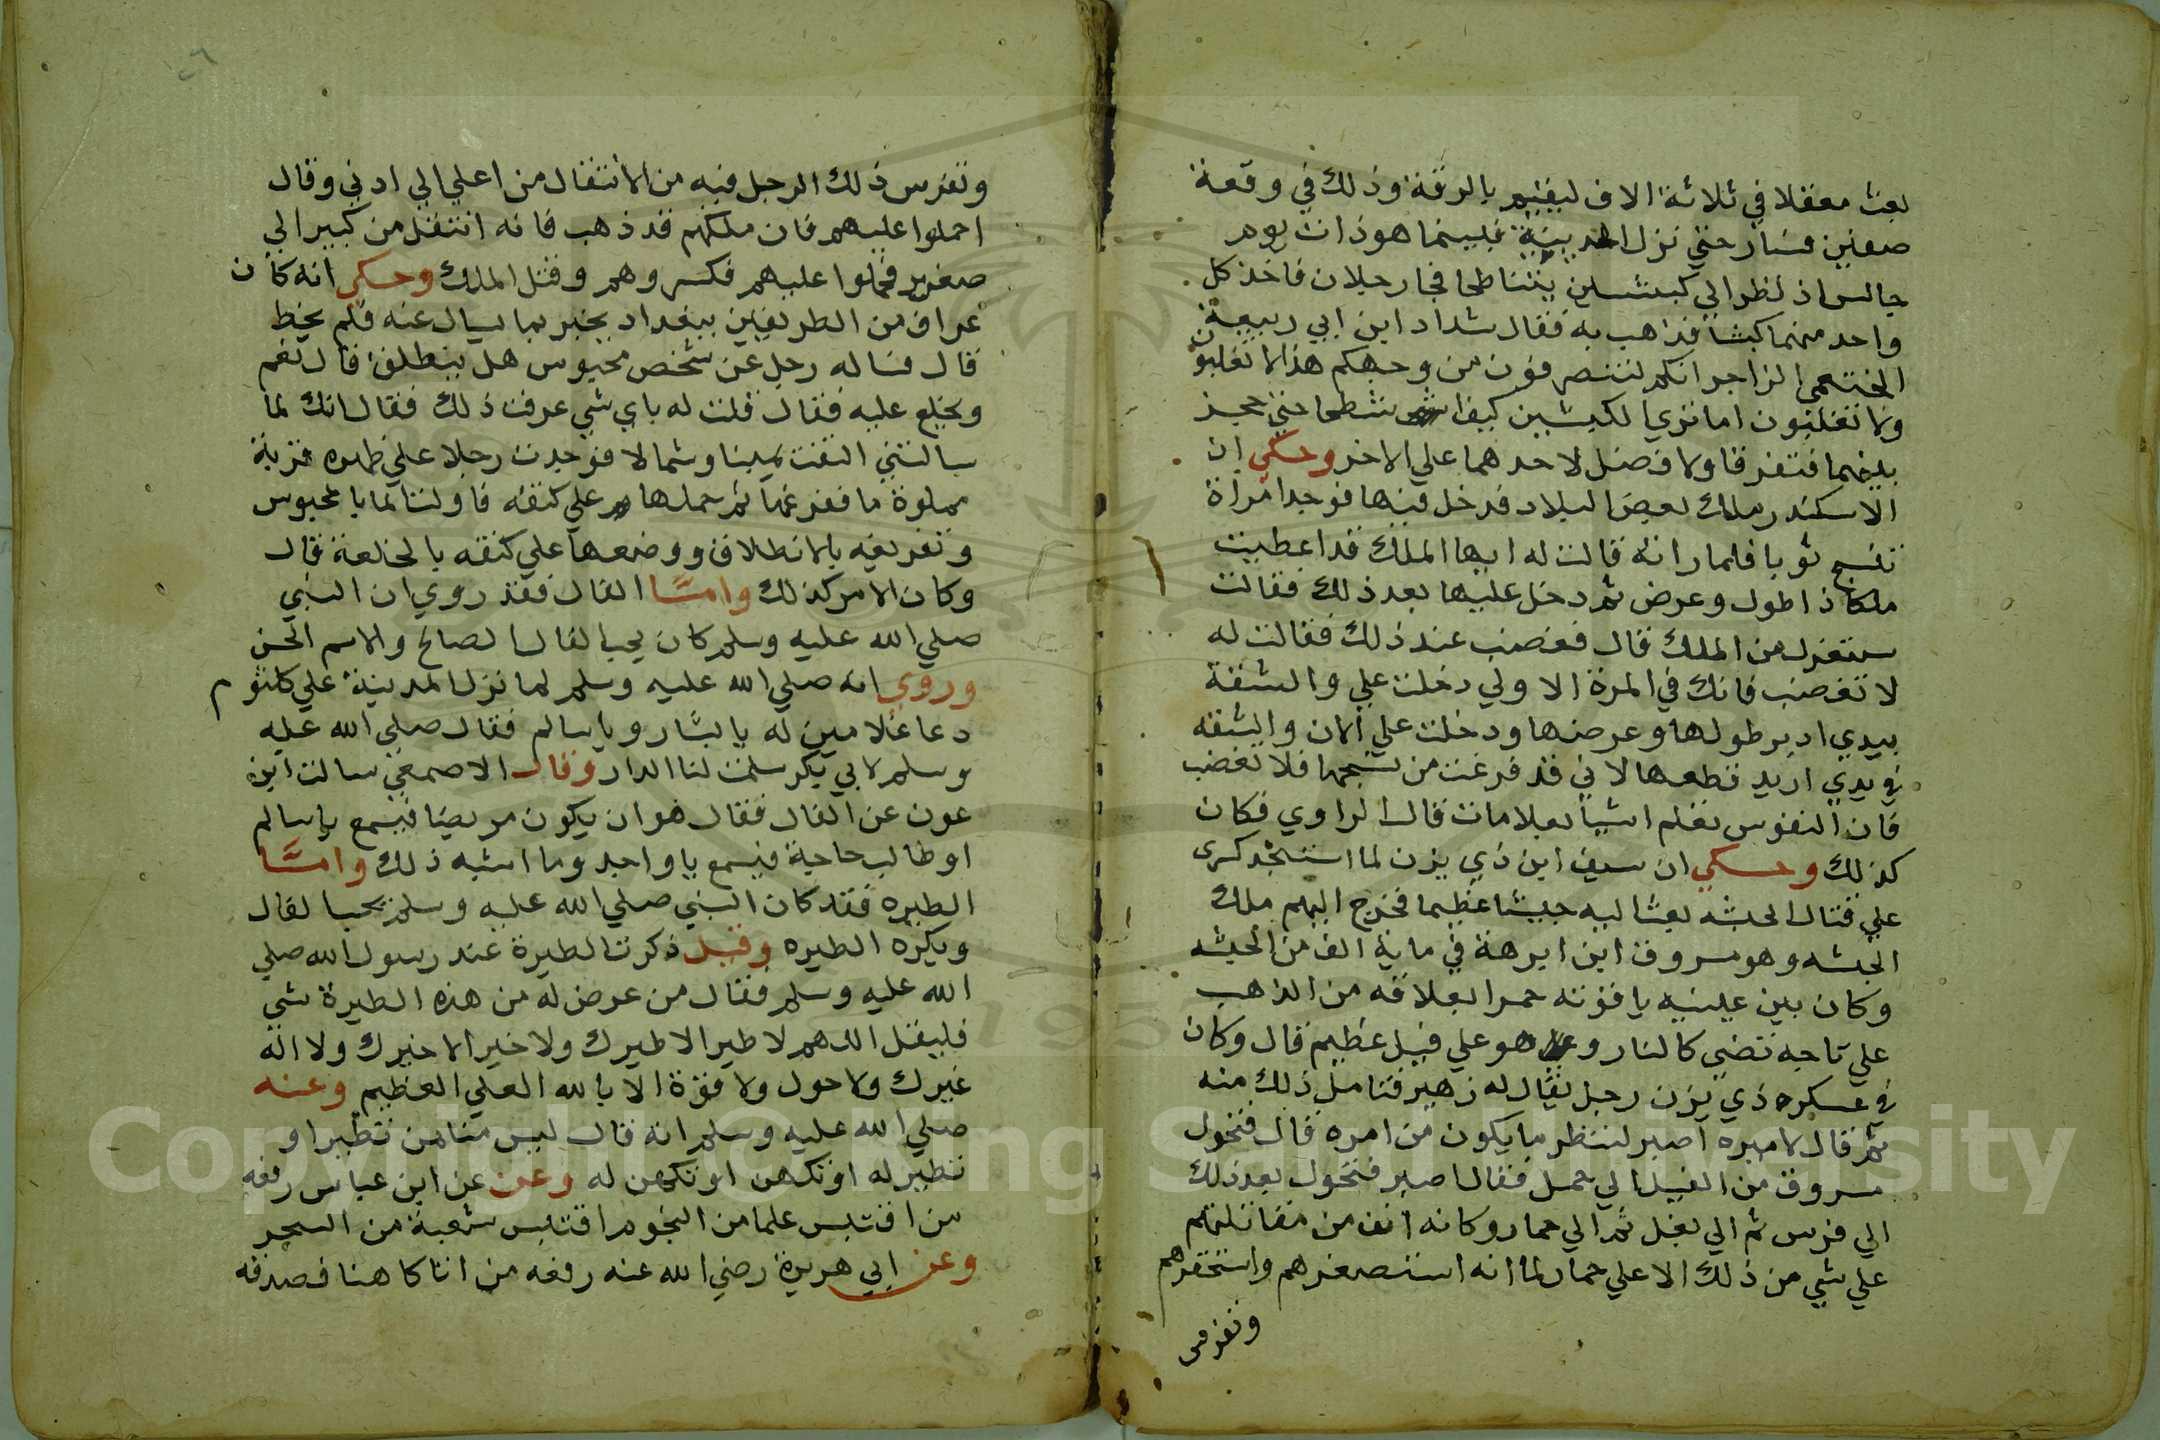 بعث معقلا في ثلاثة الاف ليقيم بالرقة وذلك في وقعة
صفين فسار حتي نزل الحديبية فبينما هو ذات يوم
جالس اذ نظر الي كبشين يتناطحا فجا رجلان فاخذ كل
واحد منهما كبشا فذاهب به فقال شداد ابن ابي ربيعة
الخثعمي الزاجر انكم لتنصرفون من وجهكم هذا لا تغلبون
ولا تغلبون اما تري الكبشين كيف انتطحا حتي حجز
بينهما فتفرقا ولا فضل لاحدهما علي الاخر وحكي ان
الاسكندر ملك بعض البلاد فدخل فيها فوجد امراة
تنسج ثوبا فلما راته قالت له ايها الملك قد اعطيت
ملكا ذا طول وعرض ثم دخل عليها بعد ذلك فقالت
ستعزل من الملك قال فغضب عند ذلك فقالت له
لا تغضب فانك في المرة الاولي دخلت علي والشقة
بيدي ادبر طولها وعرضها ودخلت علي الان والشقه
في يدي اريد قطعها لاني قد فرغت من نسجها فلا تغضب
فان النفوس تعلم اشيا بعلامات قال الراوي فكان
كذلك وحكي ان سيف ابن ذي يزن لما استنجد كسرى
علي قتال الحبشه بعث اليه جيشا عظيما فخرج اليهم ملك
الحبشه وهو مسروق ابن ابرهة في ماية الف من الحبشه
وكان بين عينيه ياقوته حمرا بعلاقه من الذهب
علي تاجه تضي كالنار وهو علي فيل عظيم قال وكان
في عسكره ذي يزن رجل يقال له زهير فتامل ذلك منه
ثم قال لاميره اصبر لننظر ما يكون من امره قال فتحول
مسروق من الفيل الي جمل فقال اصبر فتحول بعد ذلك
الي فرس ثم الي بغل ثم الي حمار وكانه انف من مقاتلتهم
علي شي من ذلك الا علي حمار لما انه استصغرهم واستحقرهم
وتفرس
وتفرس ذلك الرجل فيه من الانتقال من اعلي الي ادني وقال
احملوا عليهم فان ملكهم قد ذهب فانه انتقل من كبير الي
صغير فحملوا عليهم فكسروهم وقتل الملك وحكي انه كان
عراف من الطرفين ببغداد يخبر بما يسال عنه فلم يخط
قال فساله رجل عن شخص محبوس هل ينطلق قال نعم
ويخلع عليه فقال قلت له باي شي عرفت ذلك فقال انك لما
سالتني التفت يمينا وشمالا فوجدت رجلا علي ظهره قربة
مملوة ما ففرغها ثم حملها علي كتفه فاولت الما بالمحبوس
وتفريغه بالانطلاق ووضعها علي كتفه بالخلعة قال
وكان الامر كذلك وامّا الفال فقد روي ان النبي
صلي الله عليه وسلم كان يحب الفال الصالح والاسم الحسن
وروي انه صلي الله عليه وسلم لما نزل المدينة علي كلثوم
دعا غلامين له يا بشار ويا سالم فقال صلي الله عليه
وسلم لابي بكر سلمت لنا الدار وقال الاصمعي سالت ابن
عون عن الفال فقال هو ان يكون مريضا فيسمع يا سالم
او طالب حاجة فيسمع يا واجد وما اشبه ذلك وامّا
الطيره فقد كان النبي صلي الله عليه وسلم يحب الفال
ويكره الطيره وقيل ذكرت الطيرة عند رسول الله صلي
الله عليه وسلم فقال من عرض له من هذه الطيرة شي
فليقل اللهم لا طير الا طيرك ولا خير الا خيرك ولا اله
غيرك ولا حول ولا قوة الا بالله العلي العظيم وعنه
صلي الله عليه وسلم انه قال ليس منا من تطير او
تطير له او تكهن او تكهن له وعن عن ابن عباس رفعه
من اقتبس علما من النجوم اقتبس شعبة من السحر
وعن ابي هريرة رضي الله عنه رفعه من اتا كاهنا فصدقه
Copyright © King Saud University
1957